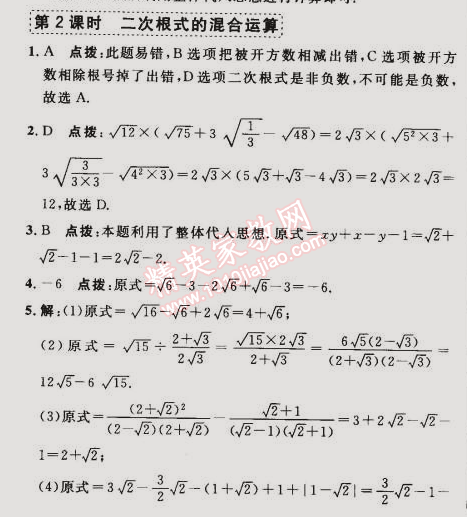 第2课时 二次根式的混合运算
1. A 点拨:此题易错,B选项把被开方数相减出错,C选项被开方
数相除根号掉了出错,D选项二次根式是非负数,不可能是负数,
故选A.
2. D 点拨:√12×(√75+3√(1/3)-√48)=2√3×(√(5²×3)+
3√(3/(3×3))-√(4²×3))=2√3×(5√3+√3-4√3)=2√3×2√3=
12,故选D.
3. B 点拨:本题利用了整体代人思想.原式=xy+x-y-1=√2+
√2-1-1=2√2-2.
4. -6 点拨:原式=√6-3-2√6+√6-3=-6.
5. 解:(1)原式=√16-√6+2√6=4+√6;
(2)原式=√15÷(2+√3)/(2√3)=(√15×2√3)/(2+√3)=(6√5(2-√3))/((2+√3)(2-√3))=
12√5-6√15.
(3)原式=(2+√2)²/((2-√2)(2+√2))-(√2+1)/((√2-1)(√2+1))=3+2√2-√2-
1=2+√2;
(4)原式=3√2-(3/2)√2-(1+√2)+1+|1-√2|=(3/2)√2-1-
精英家教网
www.1010jiajiao.com